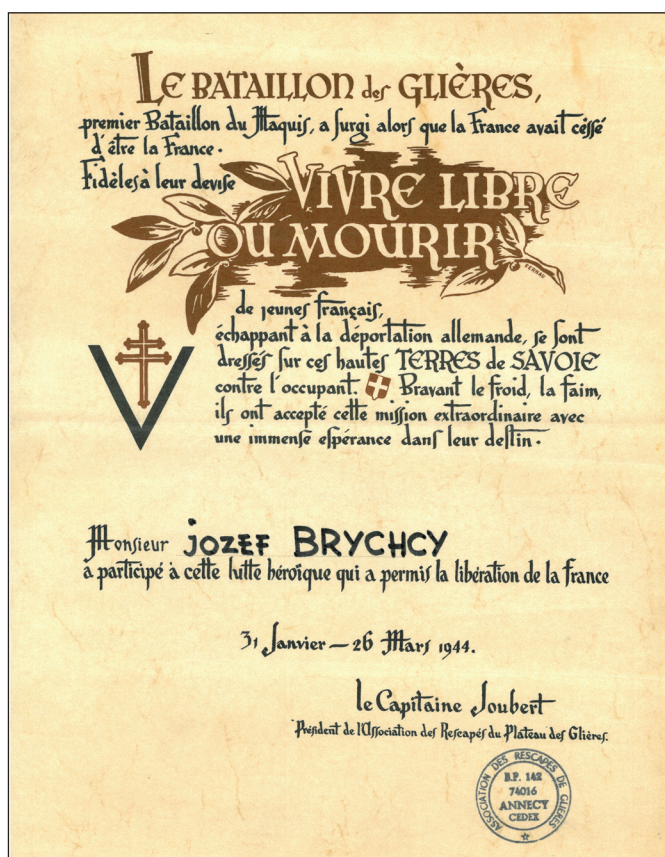 LE BATAILLON des GLIÈRES,
premier Bataillon du Maquis, a surgi alors que la France avait céssé
d'être la France.
Fidèles à leur devise
VIVRE LIBRE
OU MOURIR
de jeunes français,
échappant à la déportation allemande, se sont
dressés sur ces hautes TERRES de SAVOIE
contre l'occupant. Bravant le froid, la faim,
ils ont accepté cette mission extraordinaire avec
une immense espérance dans leur destin.
Monsieur JOZEF BRYCHCY
a participé à cette lutte héroïque qui a permis la libération de la france
31 Janvier — 26 Mars 1944.
le Capitaine Joubert
Président de l'Association des Rescapés du Plateau des Glières.
ASSOCIATION DES RESCAPES DE GLIERES
B.P. 142
74016
ANNECY
CEDEX